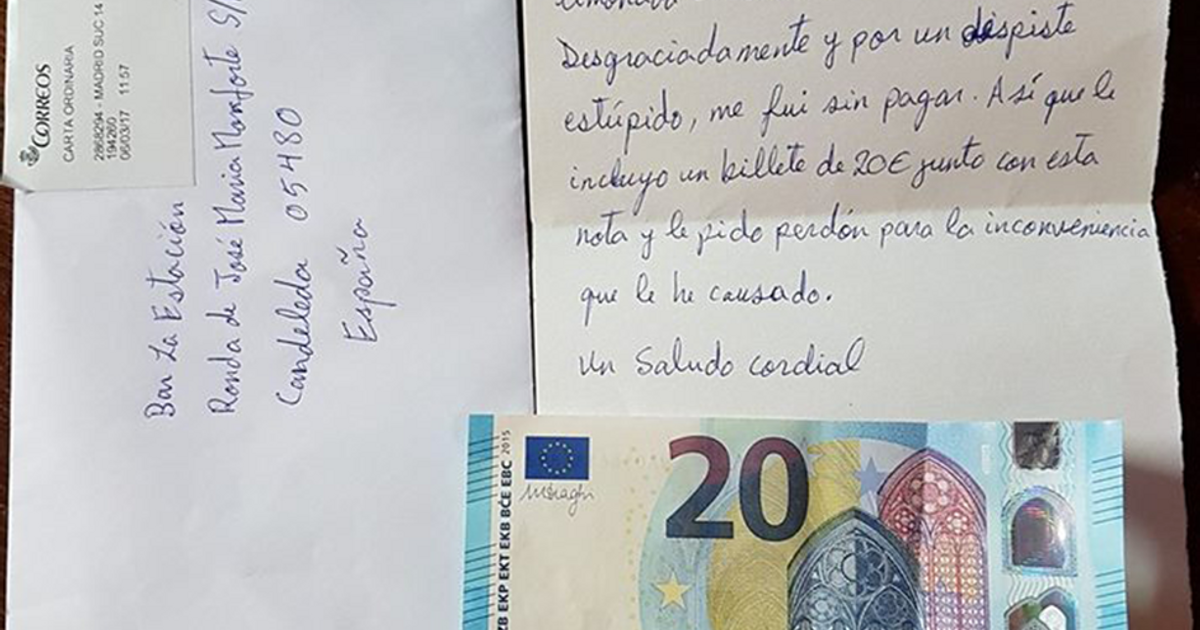 CORREOS
CARTA ORDINARIA
2868294 - MADRID SUC 14
194260
06/03/17 11:57
Bar La Estación
Ronda de José Maria Monforte S/
Candeleda 05480
España
Desgraciadamente y por un despiste
estúpido, me fui sin pagar. Así que le
incluyo un billete de 20€ junto con esta
nota y le pido perdón para la inconveniencia
que le he causado.
Un Saludo cordial
EKP EKT EKB BCE EBC 2015
20